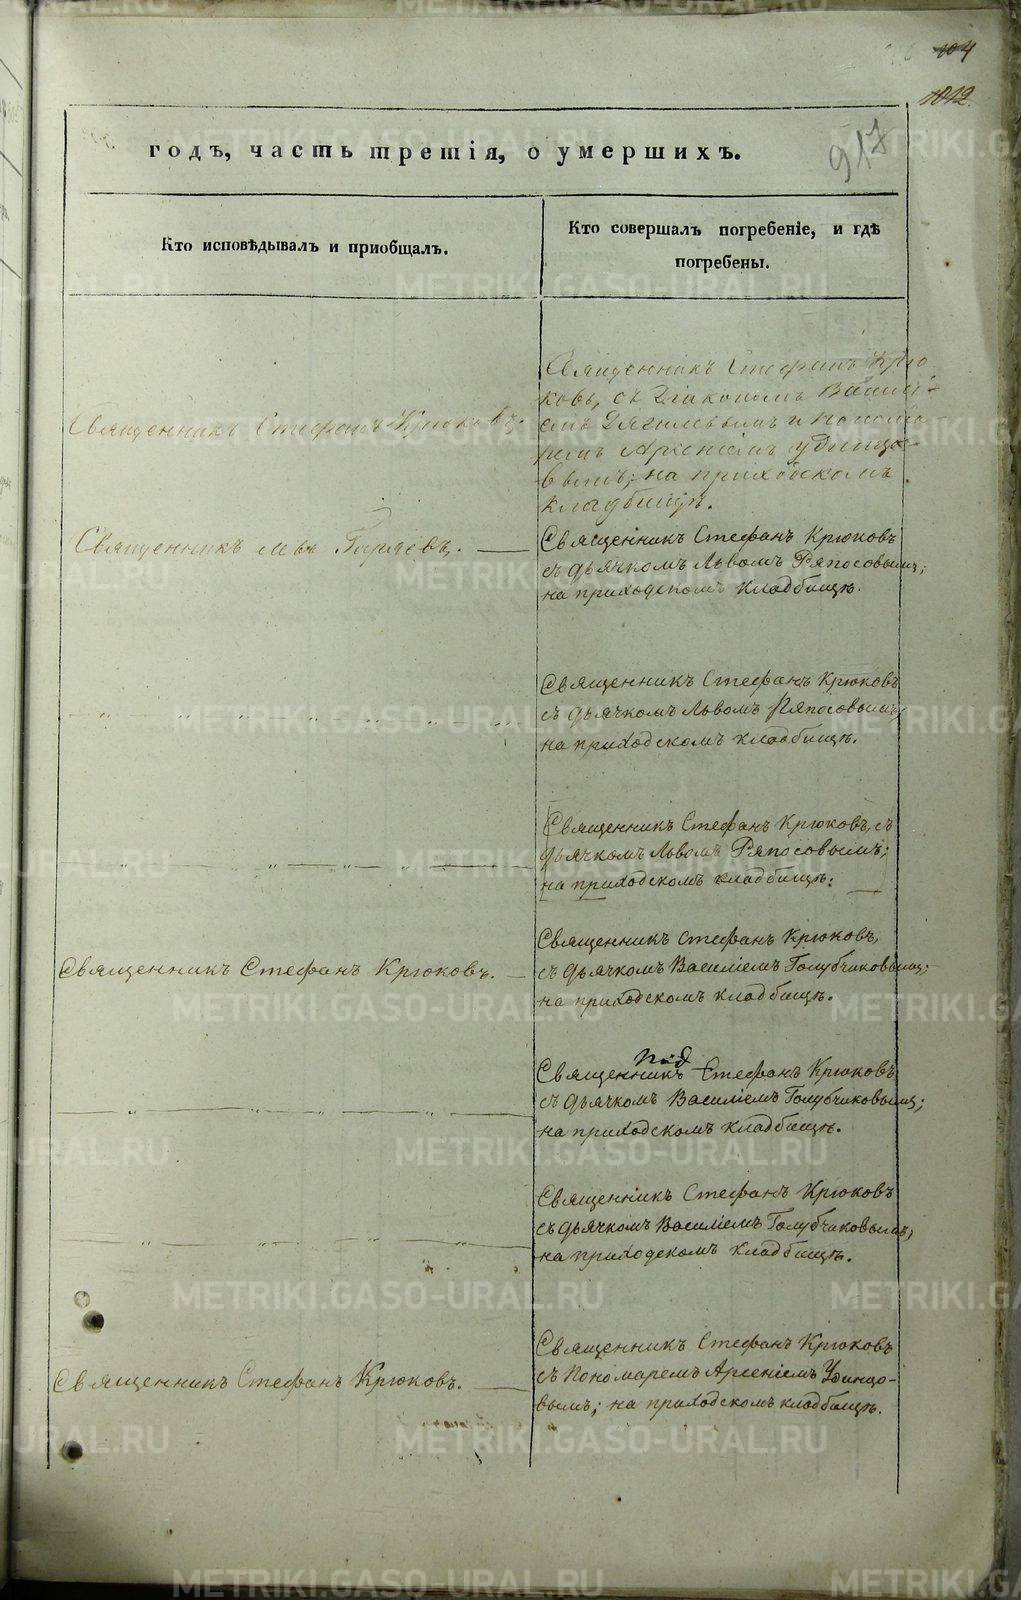 104
1012.
917
годъ, часть третія, о умершихъ.
Кто исповѣдывалъ и приобщалъ.
Кто совершалъ погребеніе, и гдѣ
погребены.
Священникъ Стефанъ Крюковъ.
Священникъ Стефанъ Крю-
ковъ, съ Діакономъ Васили-
емъ и Понома-
ремъ Арсеніемъ Удинцо-
вымъ; на приходскомъ
кладбищѣ.
Священникъ
Священникъ Стефанъ Крюковъ
съ дьячкомъ Львомъ Ряпосовымъ;
на приходскомъ кладбищѣ.
Священникъ Стефанъ Крюковъ
съ дьячкомъ Львомъ Ряпосовымъ;
на приходскомъ кладбищѣ.
Священникъ Стефанъ Крюковъ, съ
дьячкомъ Львомъ Ряпосовымъ;
на приходскомъ кладбищѣ.
Священникъ Стефанъ Крюковъ.
Священникъ Стефанъ Крюковъ,
съ дьячкомъ Василіемъ Голубчиковымъ;
на приходскомъ кладбищѣ.
Священникъ Стефанъ Крюковъ
съ дьячкомъ Василіемъ Голубчиковымъ;
на приходскомъ кладбищѣ.
Священникъ Стефанъ Крюковъ
съ дьячкомъ Василіемъ Голубчиковымъ;
на приходскомъ кладбищѣ.
Священникъ Стефанъ Крюковъ.
Священникъ Стефанъ Крюковъ
съ Пономаремъ Арсеніемъ Удинцо-
вымъ; на приходскомъ кладбищѣ.
METRIKI.GASO-URAL.RU